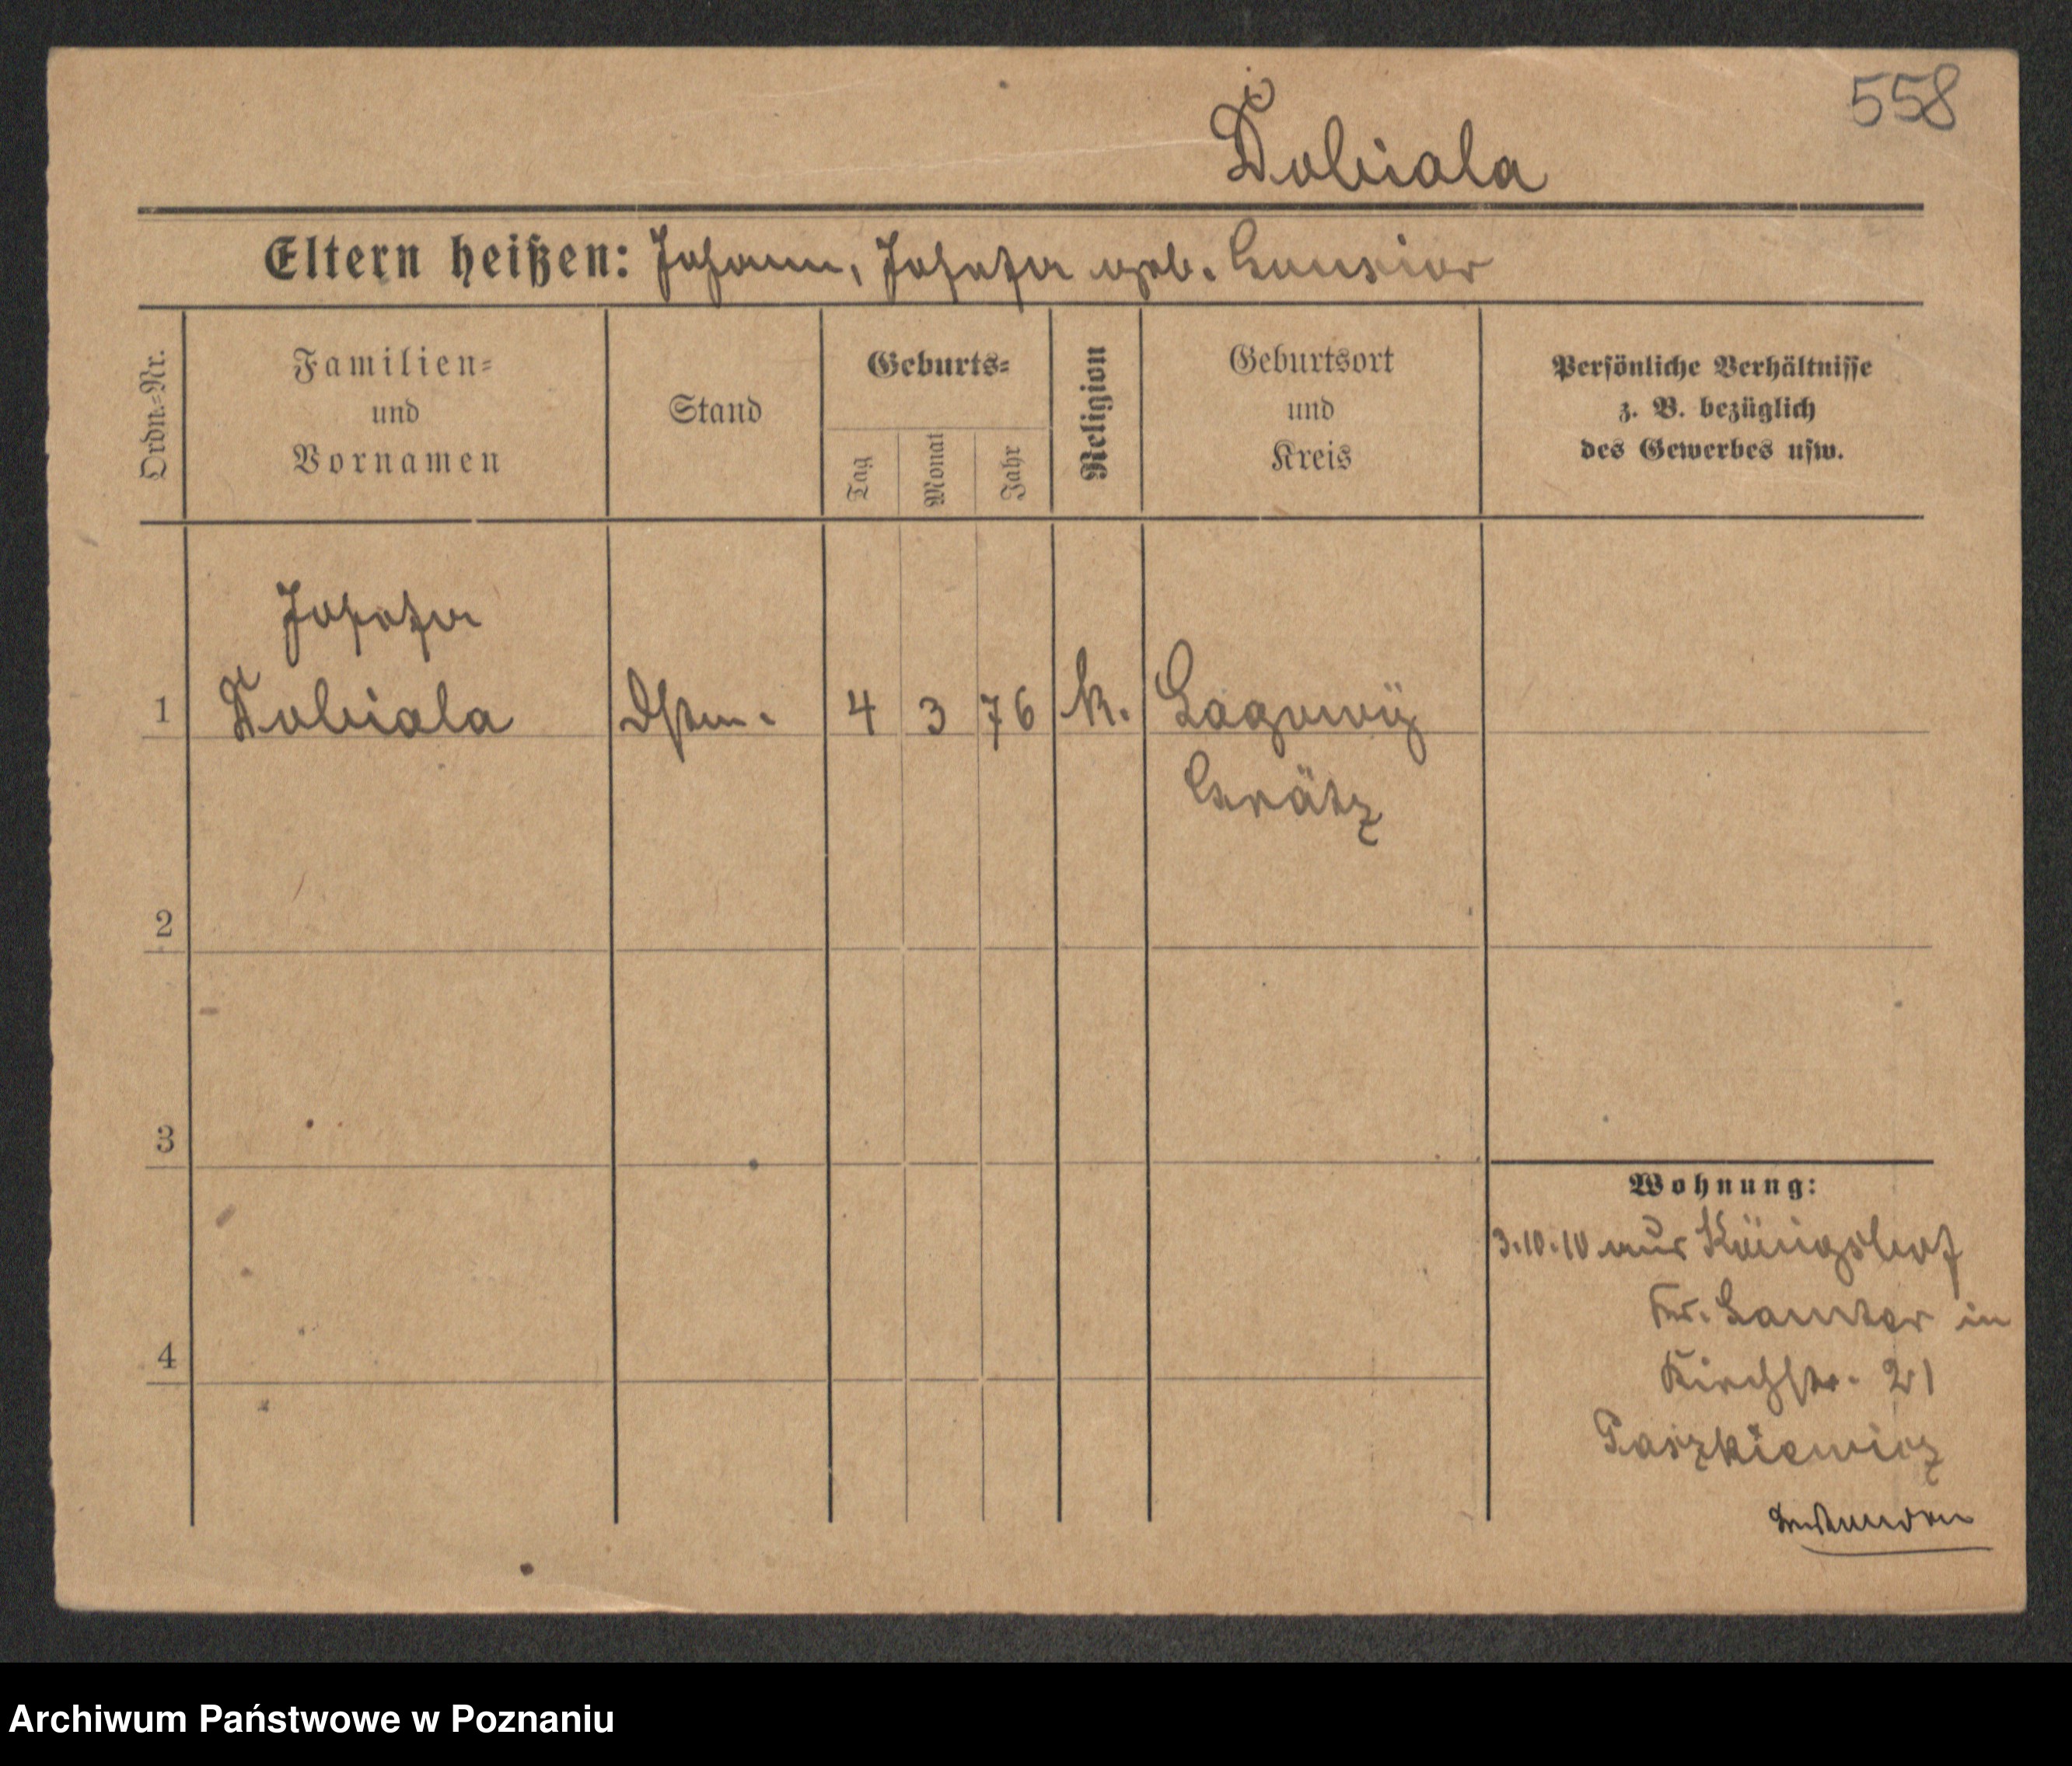 558
Dobiala
Eltern heißen: Johann, Josefa geb. Gonsior
Ordn.-Nr.
Familien-
und
Vornamen
Stand
Geburts-
Tag
Monat
Jahr
Religion
Geburtsort
und
Kreis
Persönliche Verhältnisse
z. B. bezüglich
des Gewerbes usw.
Josefa
1 Dobiala 4 3 76 k. Lagowy
Grätz
2
3
4
Wohnung:
3.10.10 aus Königshof
in
Kirchstr. 21
Paszkiewicz
Archiwum Państwowe w Poznaniu